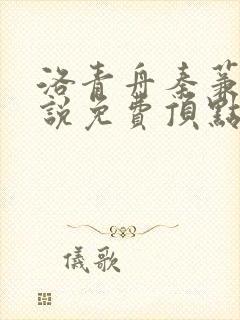 洛青舟秦蒹
說免費頂點
儀歌